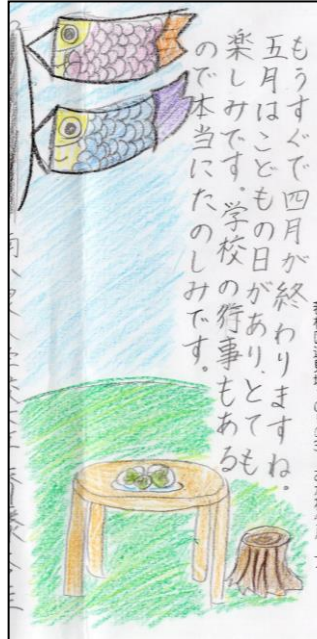 もうすぐで四月が終わりますね。
五月はこどもの日があり、とても
楽しみです。学校の行事もある
ので本当にたのしみです。